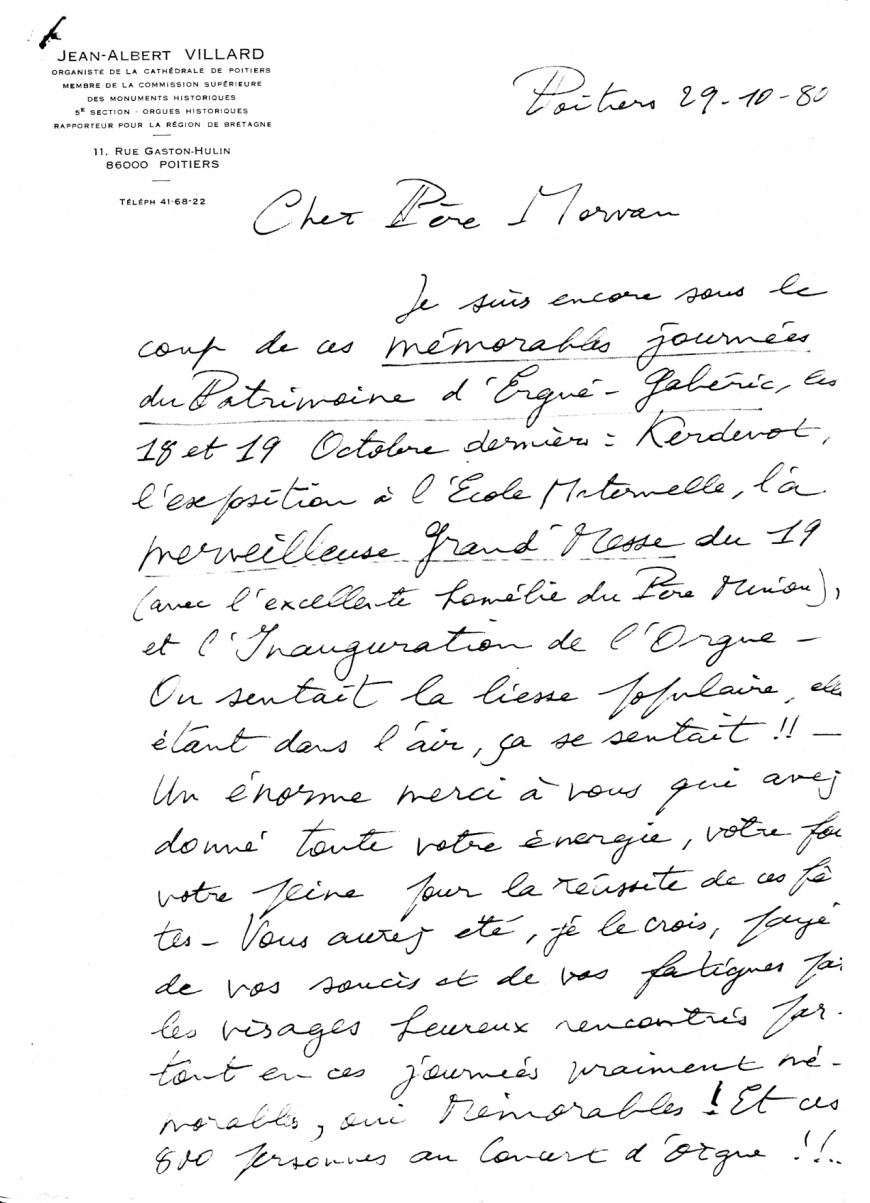 JEAN-ALBERT VILLARD
ORGANISTE DE LA CATHÉDRALE DE POITIERS
MEMBRE DE LA COMMISSION SUPÉRIEURE
DES MONUMENTS HISTORIQUES
5E SECTION - ORGUES HISTORIQUES
RAPPORTEUR POUR LA RÉGION DE BRETAGNE
11, RUE GASTON-HULIN
86000 POITIERS
TÉLÉPH 41-68-22
Poitiers 29-10-80
Cher Père Morvan
Je suis encore sous le
coup de ces mémorables journées
du Patrimoine d'Ergué-Gabéric, les
18 et 19 Octobre derniers : Kerdevot,
l'exposition à l'Ecole Maternelle, la
merveilleuse Grand' Messe du 19
(avec l'excellente homélie du Père Minion),
et l'Inauguration de l'Orgue -
On sentait la liesse populaire, elle
étant dans l'air, ça se sentait !! -
Un énorme merci à vous qui avez
donné toute votre énergie, votre foi
votre peine pour la réussite de ces fê
tes - Vous aurez été, je le crois, payé
de vos soucis et de vos fatigues par
les visages heureux rencontrés par-
tout en ces journées vraiment mé-
morables, oui Mémorables ! Et ces
800 personnes au Concert d'Orgue !!..